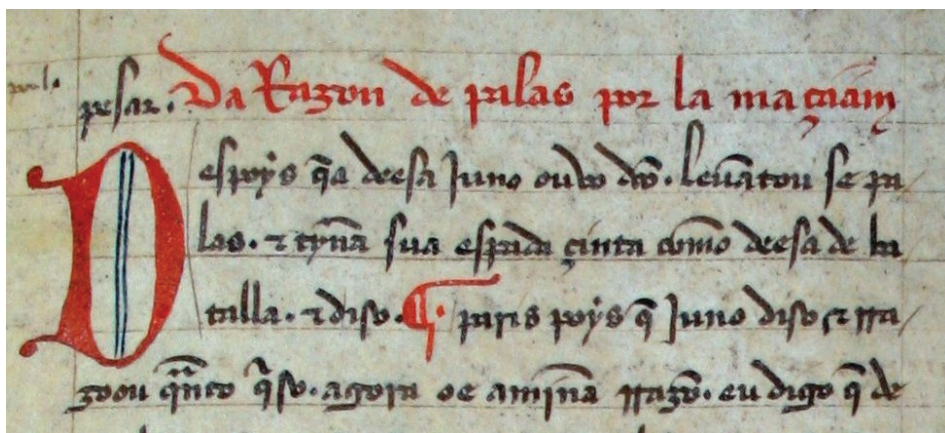 pesar. Da Razon de palas por la maçãan
Despoys q̃ a deesa Juno ouvo dc̃o. levãtou se pa
las. ⁊ tyñã sua espada çinta com̃o deesa de ba
talla. ⁊ diso. ¶ paris poys q̃ Juno diso ⁊ rra
zoou qñto q̃so. agora oe a miñã rrazõ. eu digo q̃ de